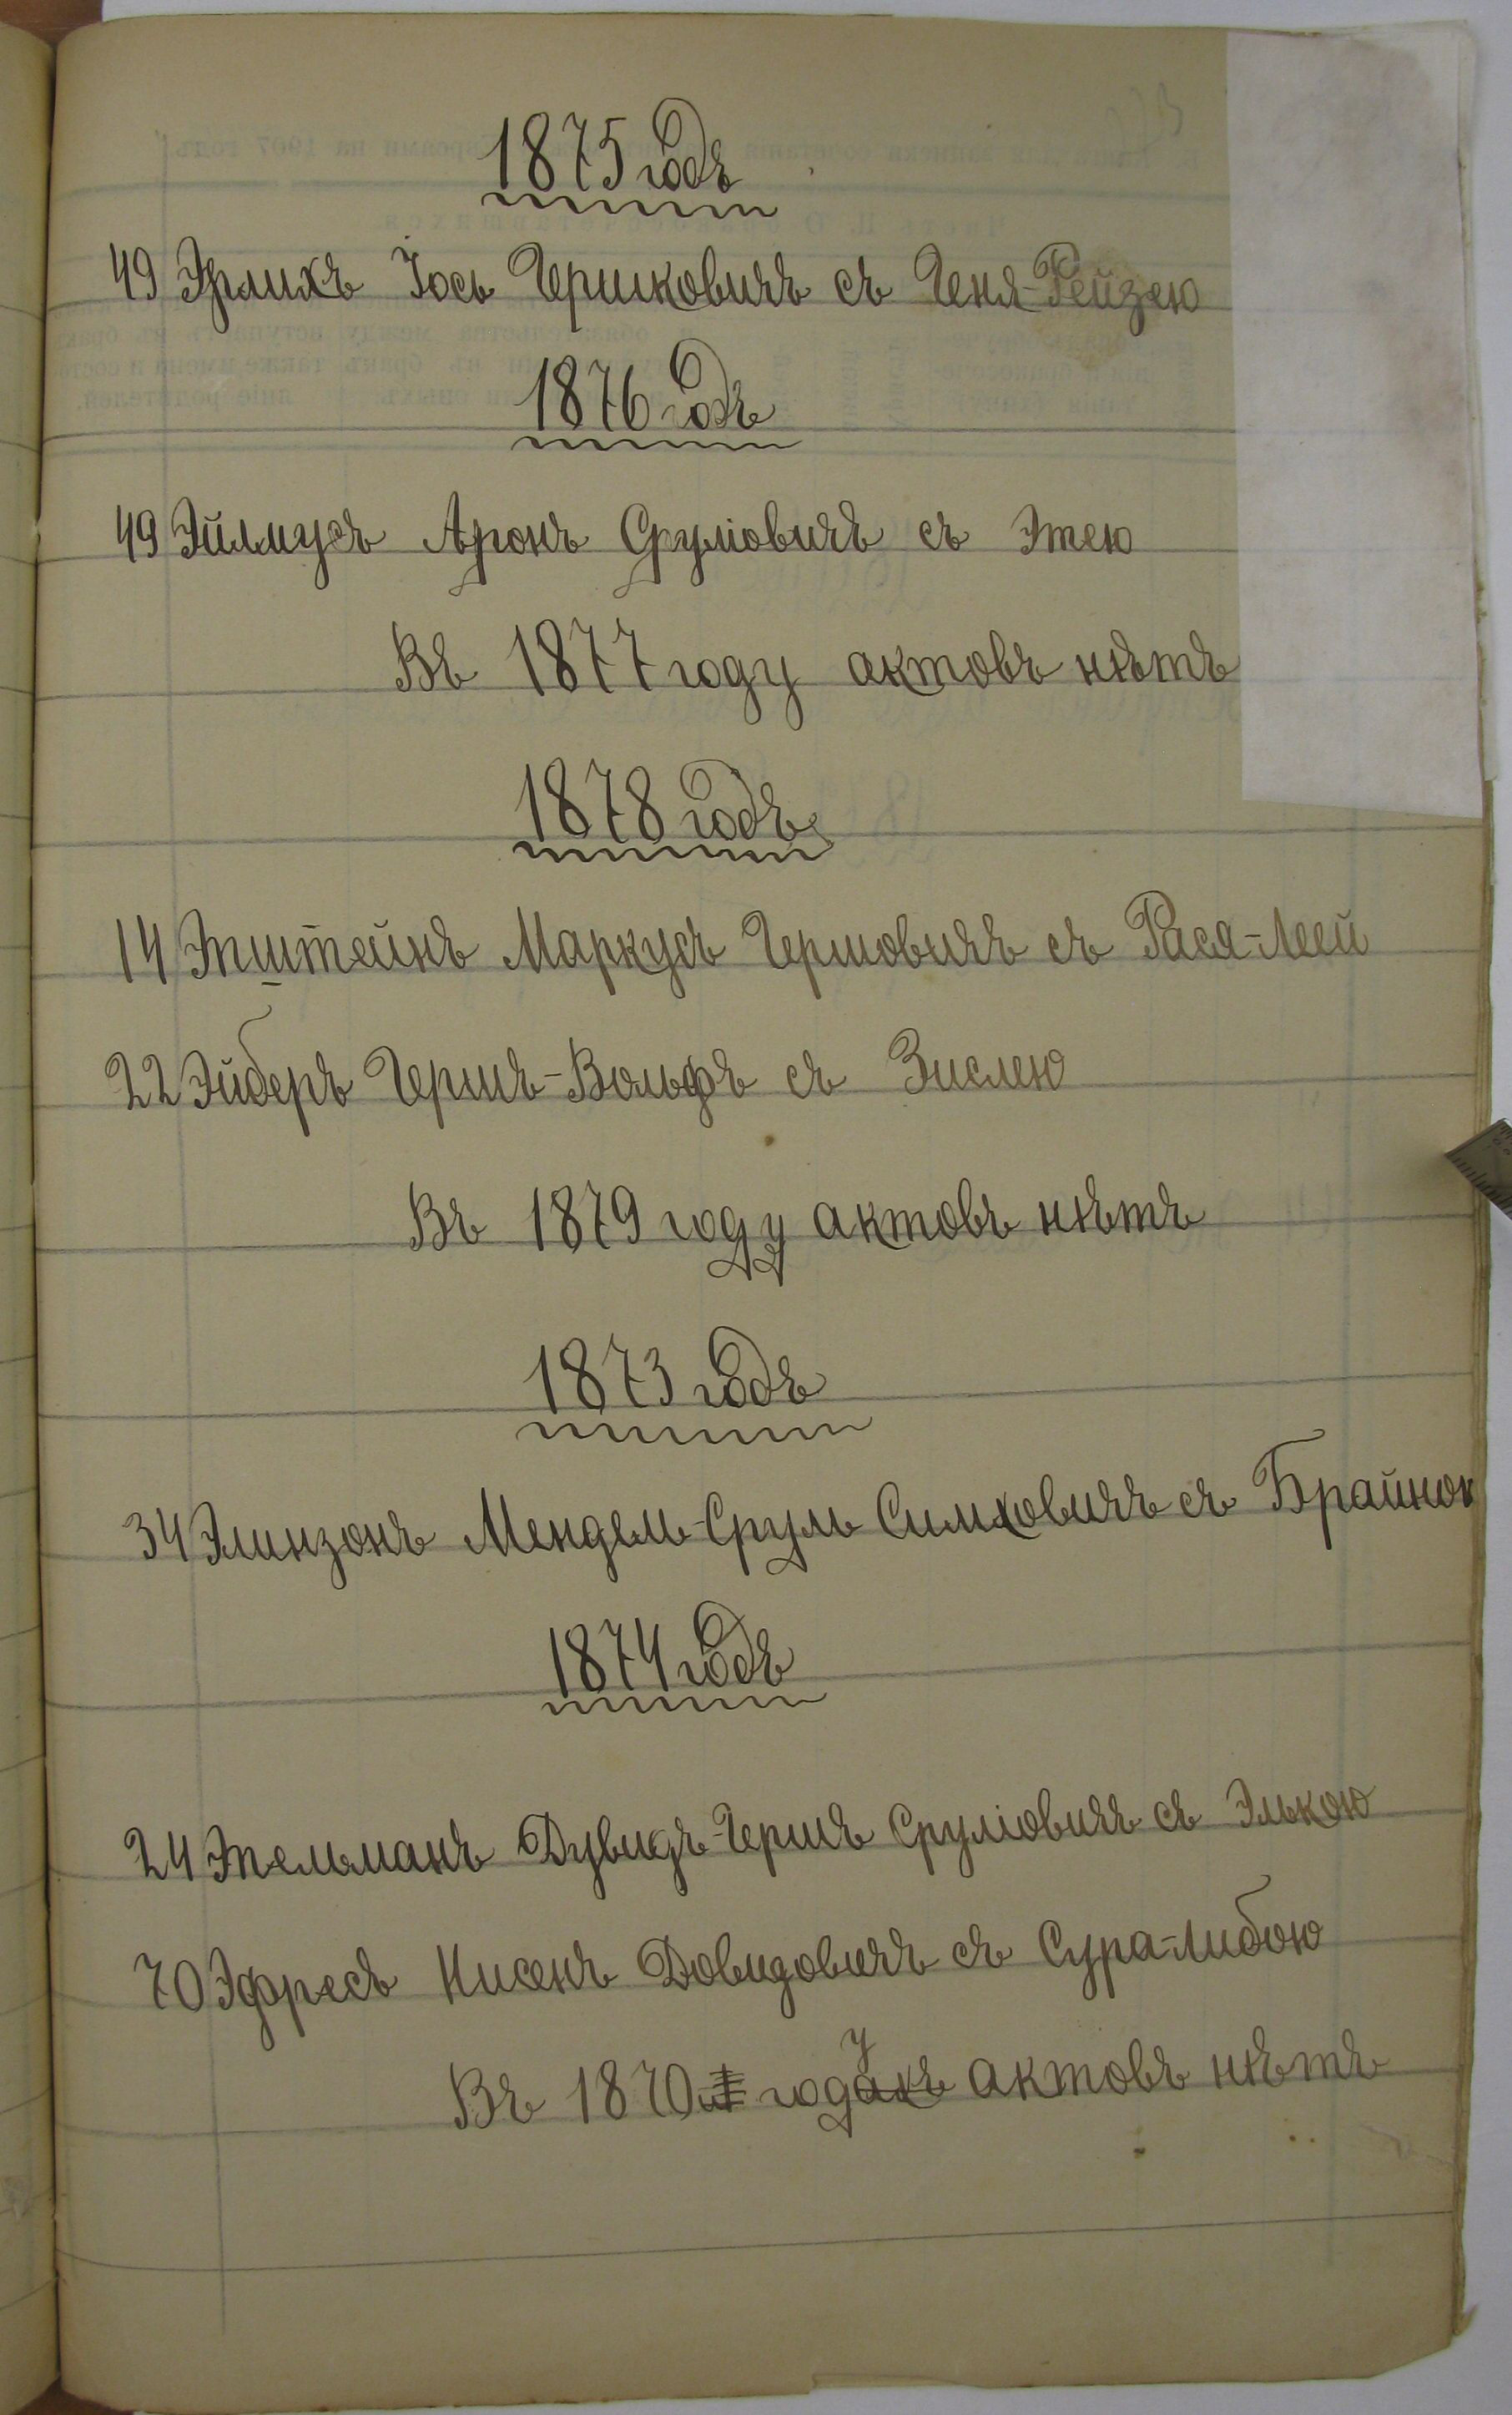 1875 годъ
49 Эрлихъ Іось Гершковичъ съ Геня-Рейзею
1876 годъ
49 Эйлмусъ Аронъ Сруліовичъ съ Этею
Въ 1877 году актовъ нѣтъ
1878 годъ
14 Эпштейнъ Маркусъ Гершовичъ съ Рася-Леей
22 Эйберъ Гершъ-Вольфъ съ Зислею
Въ 1879 году актовъ нѣтъ
1873 годъ
34 Элинзонъ Мендель-Сруль Симховичъ съ Брайною
1874 годъ
24 Этельманъ Дувидъ-Гершъ Сруліовичъ съ Элькою
70 Эфресъ Нисенъ Довидовичъ съ Сура-Либою
Въ 1870 году актовъ нѣтъ